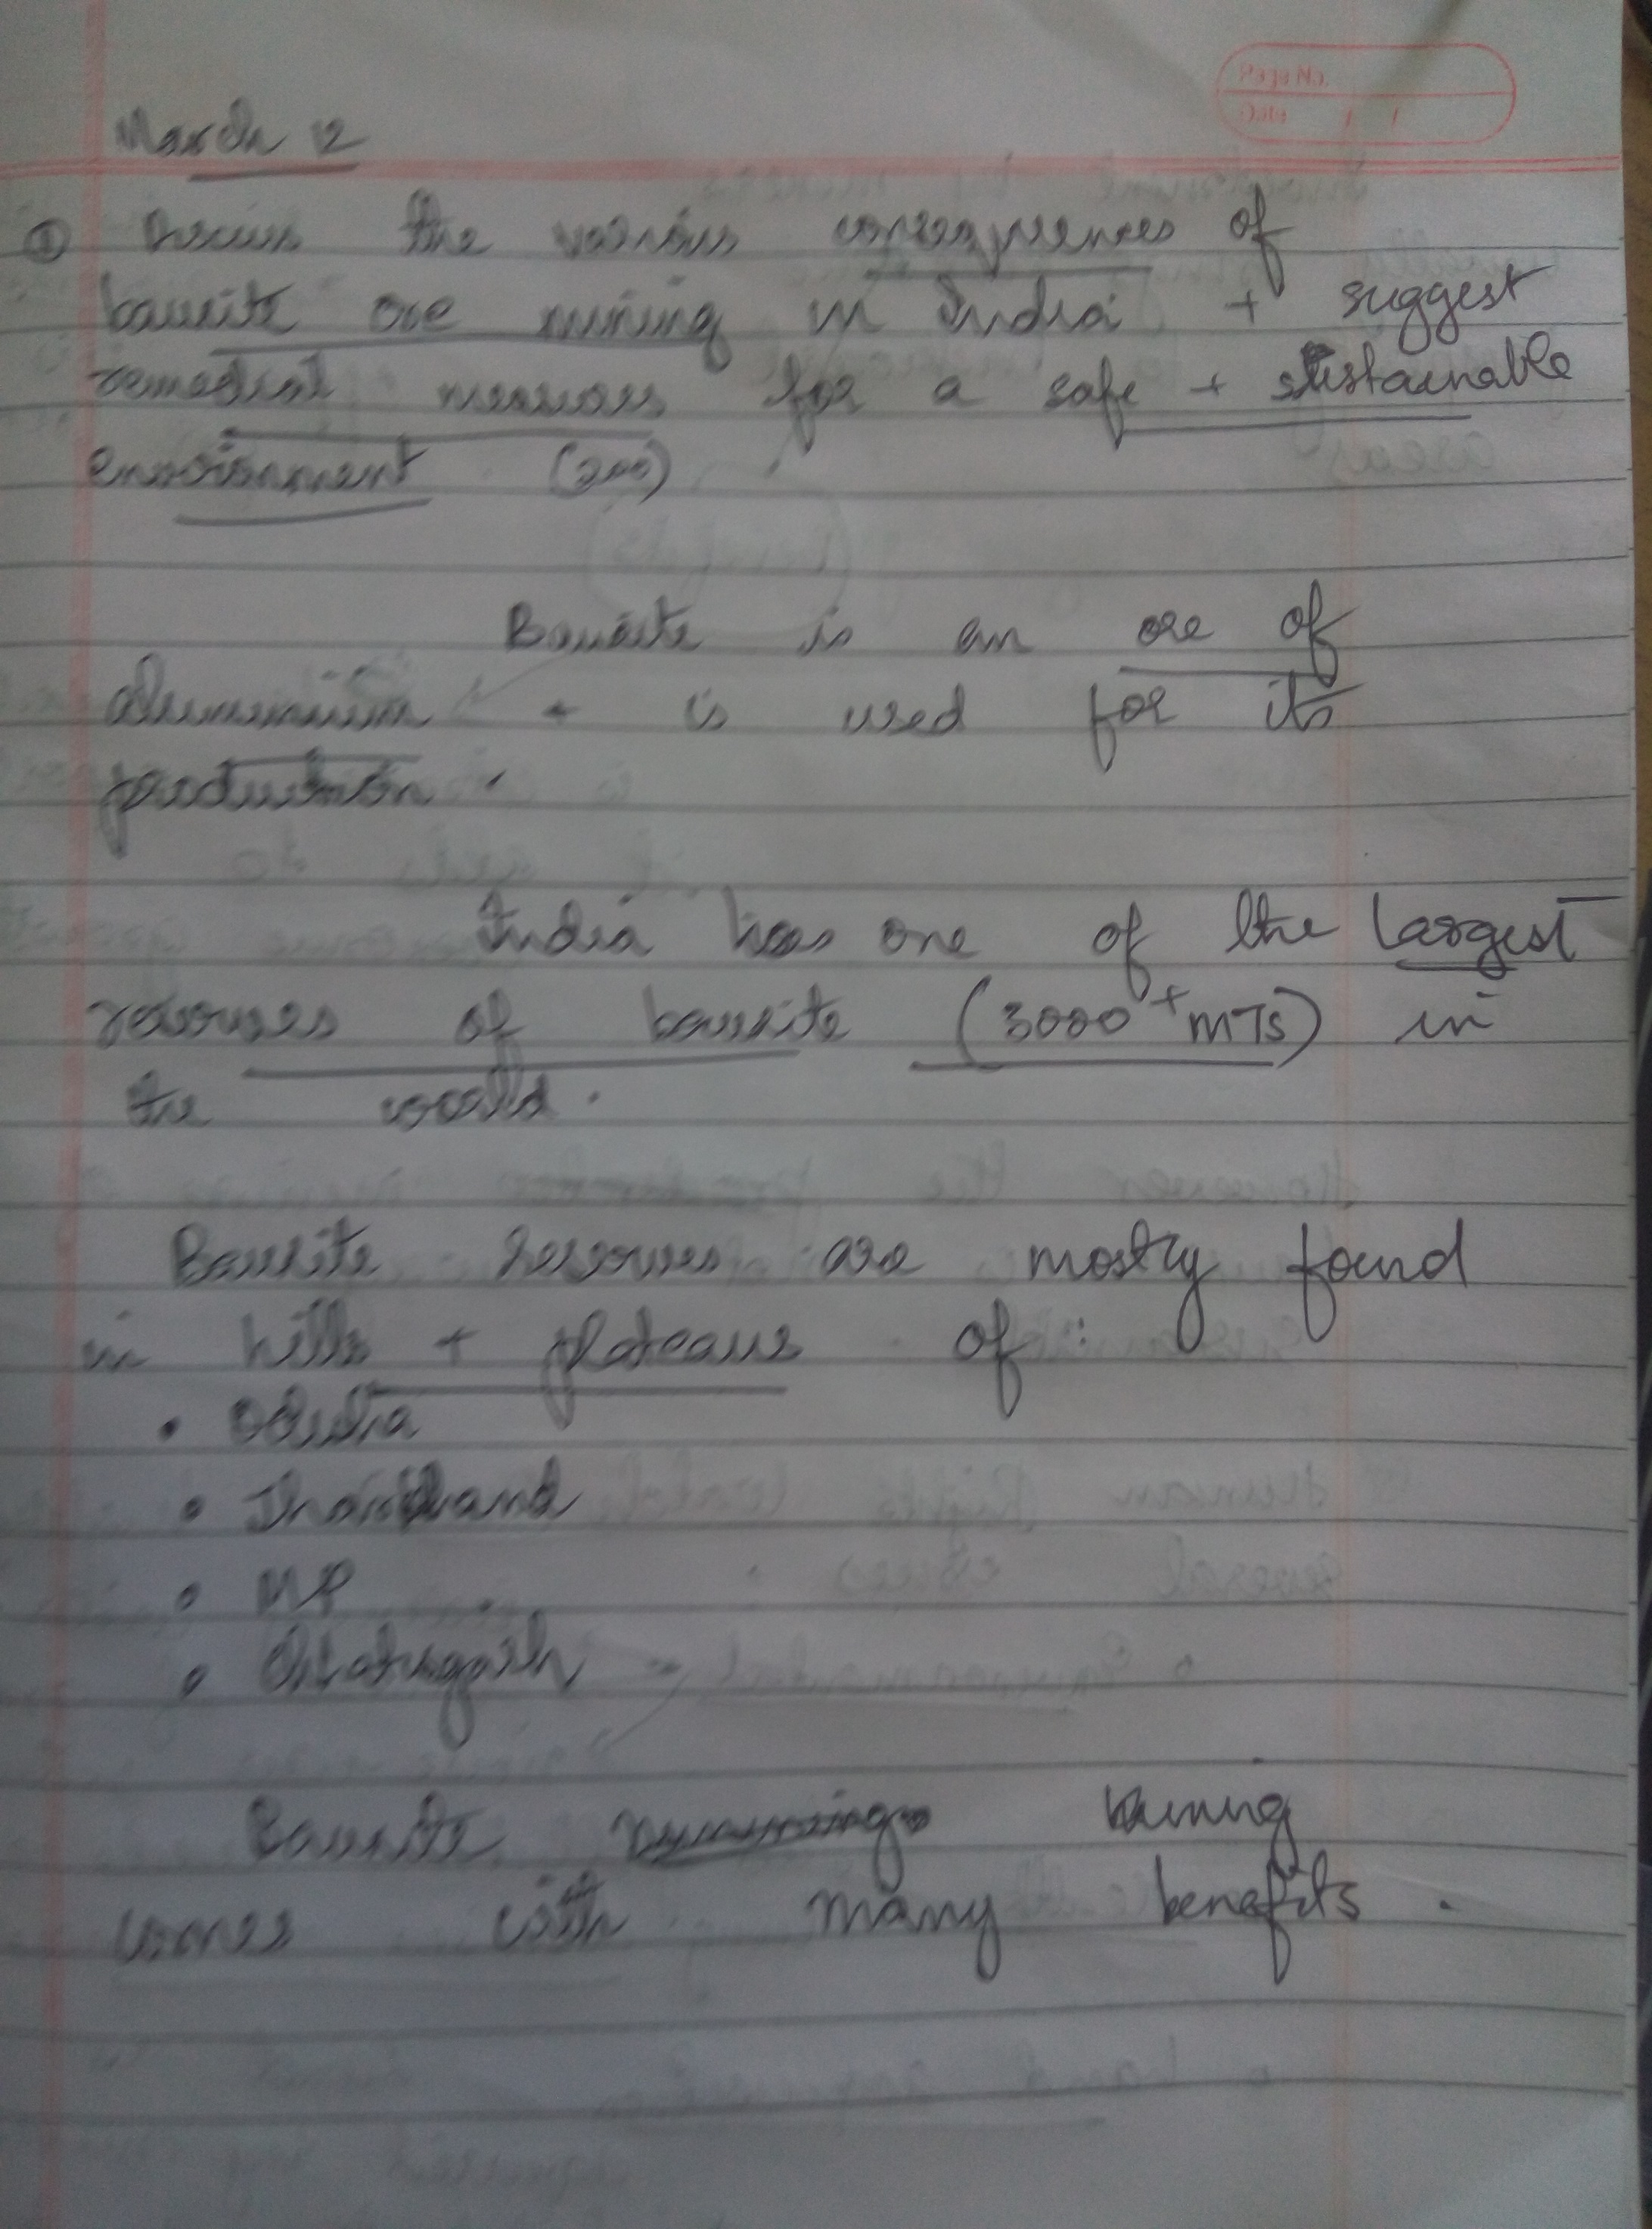 Page No.
Date / /
March 12
① Discuss the various consequences of
bauxite ore mining in India + suggest
remedial measures for a safe + sustainable
environment (200)
Bauxite is an ore of
aluminium + is used for its
production.
India has one of the largest
reserves of bauxite (3000+ MTs) in
the world.
Bauxite reserves are mostly found
in hills + plateaus of:
• Odisha
• Jharkhand
• MP
• Chhatisgarh
Bauxite mining
comes with many benefits.